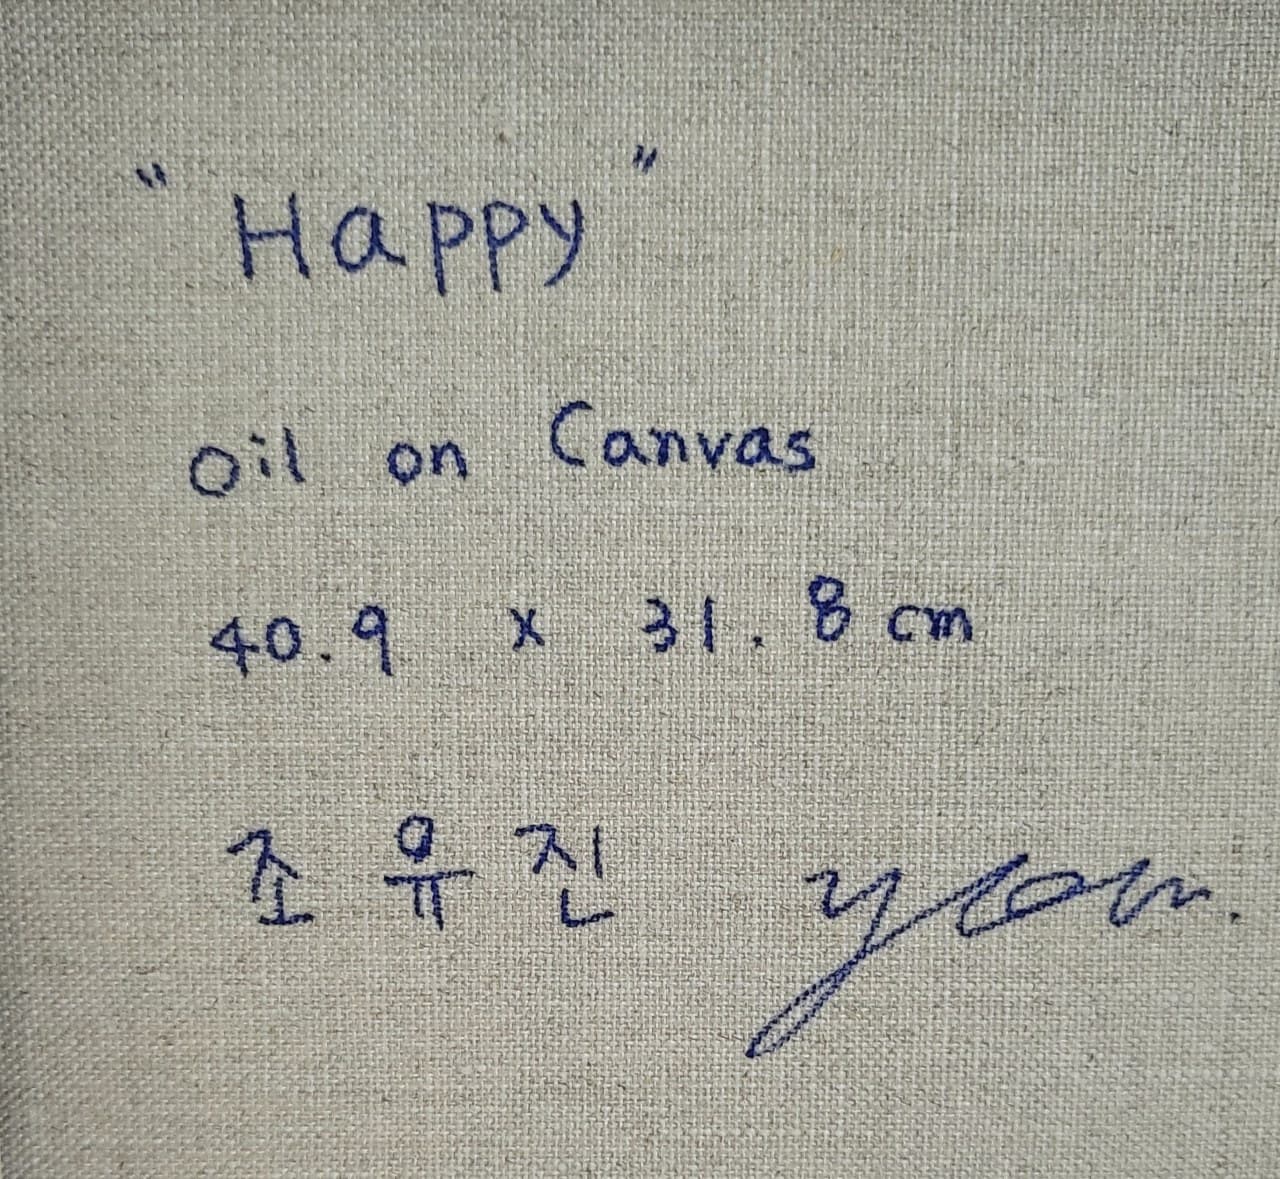 "Happy"
oil on Canvas
40.9 x 31.8 cm
조유진